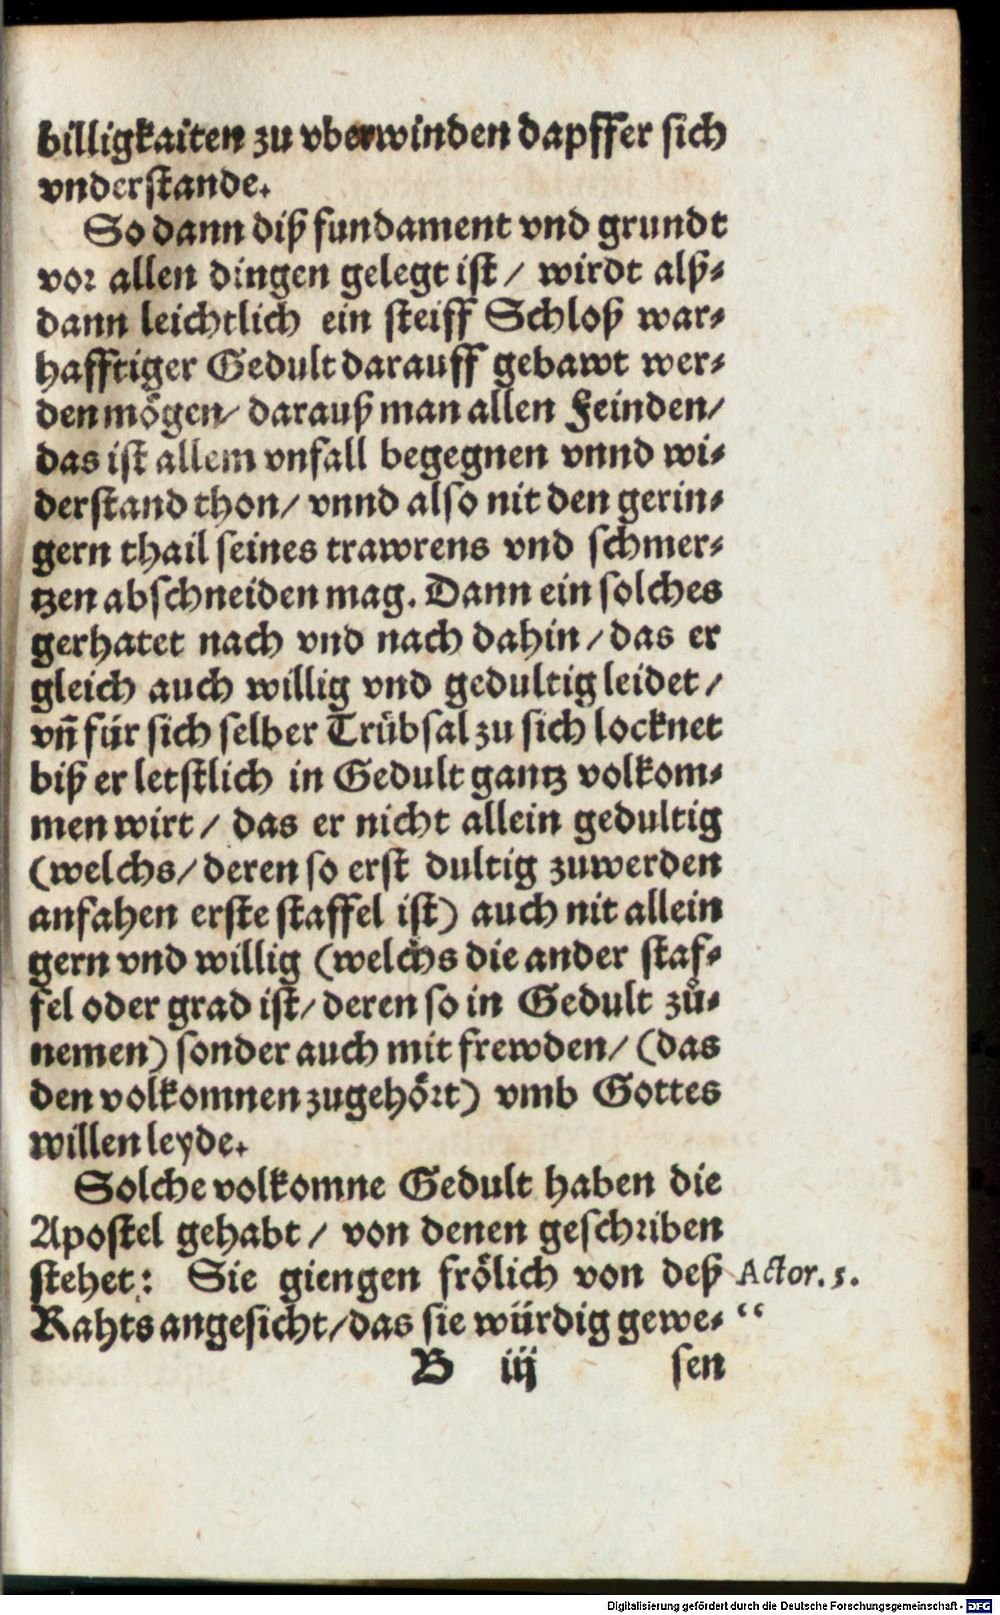 billigkaiten zu vberwinden dapffer sich
vnderstande.
So dann diß fundament vnd grundt
vor allen dingen gelegt ist / wirdt alß-
dann leichtlich ein steiff Schloß war-
hafftiger Gedult darauff gebawt wer-
den mögen / darauß man allen Feinden /
das ist allem vnfall begegnen vnnd wi-
derstand thon / vnnd also nit den gerin-
gern thail seines trawrens vnd schmer-
tzen abschneiden mag. Dann ein solches
gerhatet nach vnd nach dahin / das er
gleich auch willig vnd gedultig leidet /
vñ für sich selber Trübsal zu sich locknet
biß er letstlich in Gedult gantz volkom-
men wirt / das er nicht allein gedultig
(welchs / deren so erst dultig zuwerden
anfahen erste staffel ist) auch nit allein
gern vnd willig (welchs die ander staf-
fel oder grad ist / deren so in Gedult zů-
nemen) sonder auch mit frewden / (das
den volkomnen zugehört) vmb Gottes
willen leyde.
Solche volkomne Gedult haben die
Apostel gehabt / von denen geschriben
stehet: Sie giengen frölich von deß Actor. 5.
Rahts angesicht / das sie würdig gewe- “
B iij sen
Digitalisierung gefördert durch die Deutsche Forschungsgemeinschaft - DFG